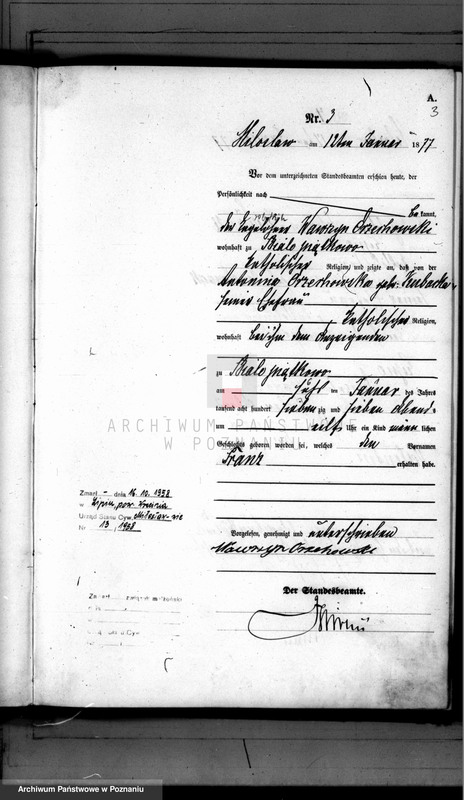 A.
3
Nr. 3
Miloslaw am 12ten Januar 1877
Vor dem unterzeichneten Standesbeamten erschien heute, der
Persönlichkeit nach
be kannt,
der Wawrzyn Orzechowski
wohnhaft zu Bialo piątkowo
katholischer Religion, und zeigte an, daß von der
Antonina Orzechowska geb.
seiner Ehefrau
katholischer Religion,
wohnhaft bei ihm dem Anzeigenden
zu Bialo piątkowo
am ten Januar des Jahres
tausend acht hundert sieben zig und sieben Abends
um eilf Uhr ein Kind männ lichen
Geschlechts geboren worden sei, welches den Vornamen
Franz erhalten habe.
Vorgelesen, genehmigt und unterschrieben
Wawrzyn Orzechowski
Der Standesbeamte.
Zmarł - dnia 16. 12. 1958
w Lipiu, pow.
Urząd Stanu Cyw. Miłosław-wieś
Nr 13 / 1958
ARCHIWUM PAŃSTWOWE
W POZNANIU
Archiwum Państwowe w Poznaniu